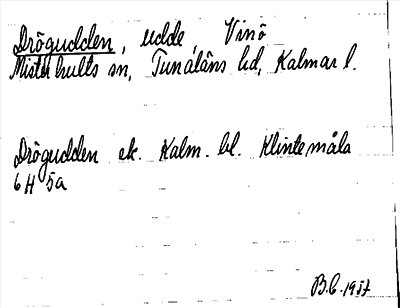 Drögudden, udde, Vinö
Misterhults sn, Tunaläns hd, Kalmar l.
Drögudden ek. Kalm. bl. Klintemåla
6H 5a
B.C. 1957